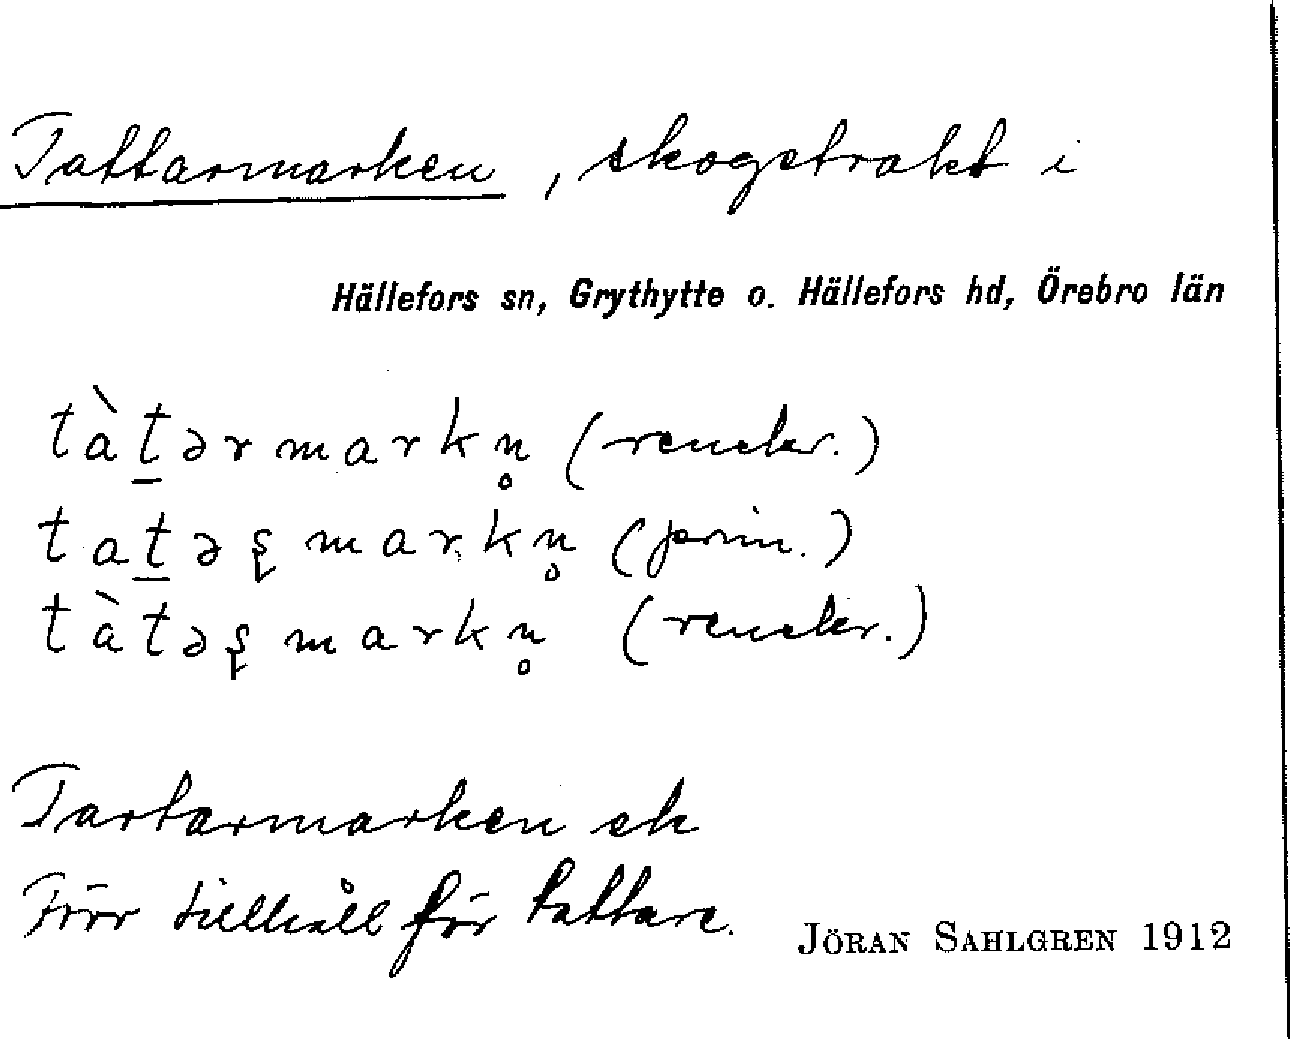 Tattarmarken, skogstrakt i
Hällefors sn, Grythytte o. Hällefors hd, Örebro län
tàt̠ərmarkn̥ (renskr.)
tat̠əʂmarkn̥ (prim.)
tàtəʂmarkn̥ (renskr.)
Tartarmarken ek
Förr tillhåll för tattare.
JÖRAN SAHLGREN 1912